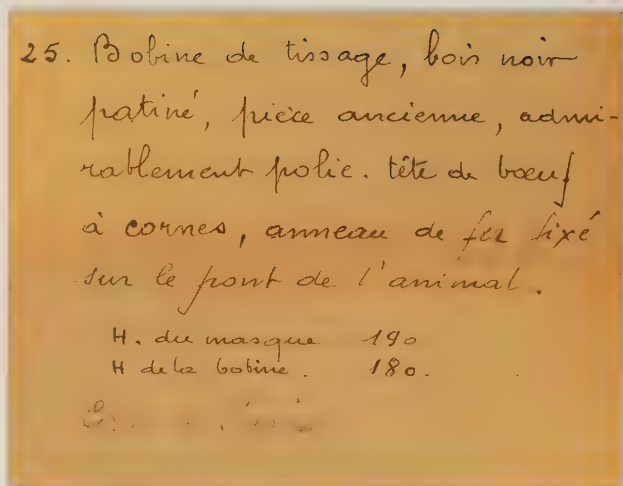 25. Bobine de tissage, bois noir
patiné, pièce ancienne, admi-
rablement polie. tête de bœuf
à cornes, anneau de fer fixé
sur le front de l'animal.
H. du masque 190
H de la bobine. 180.